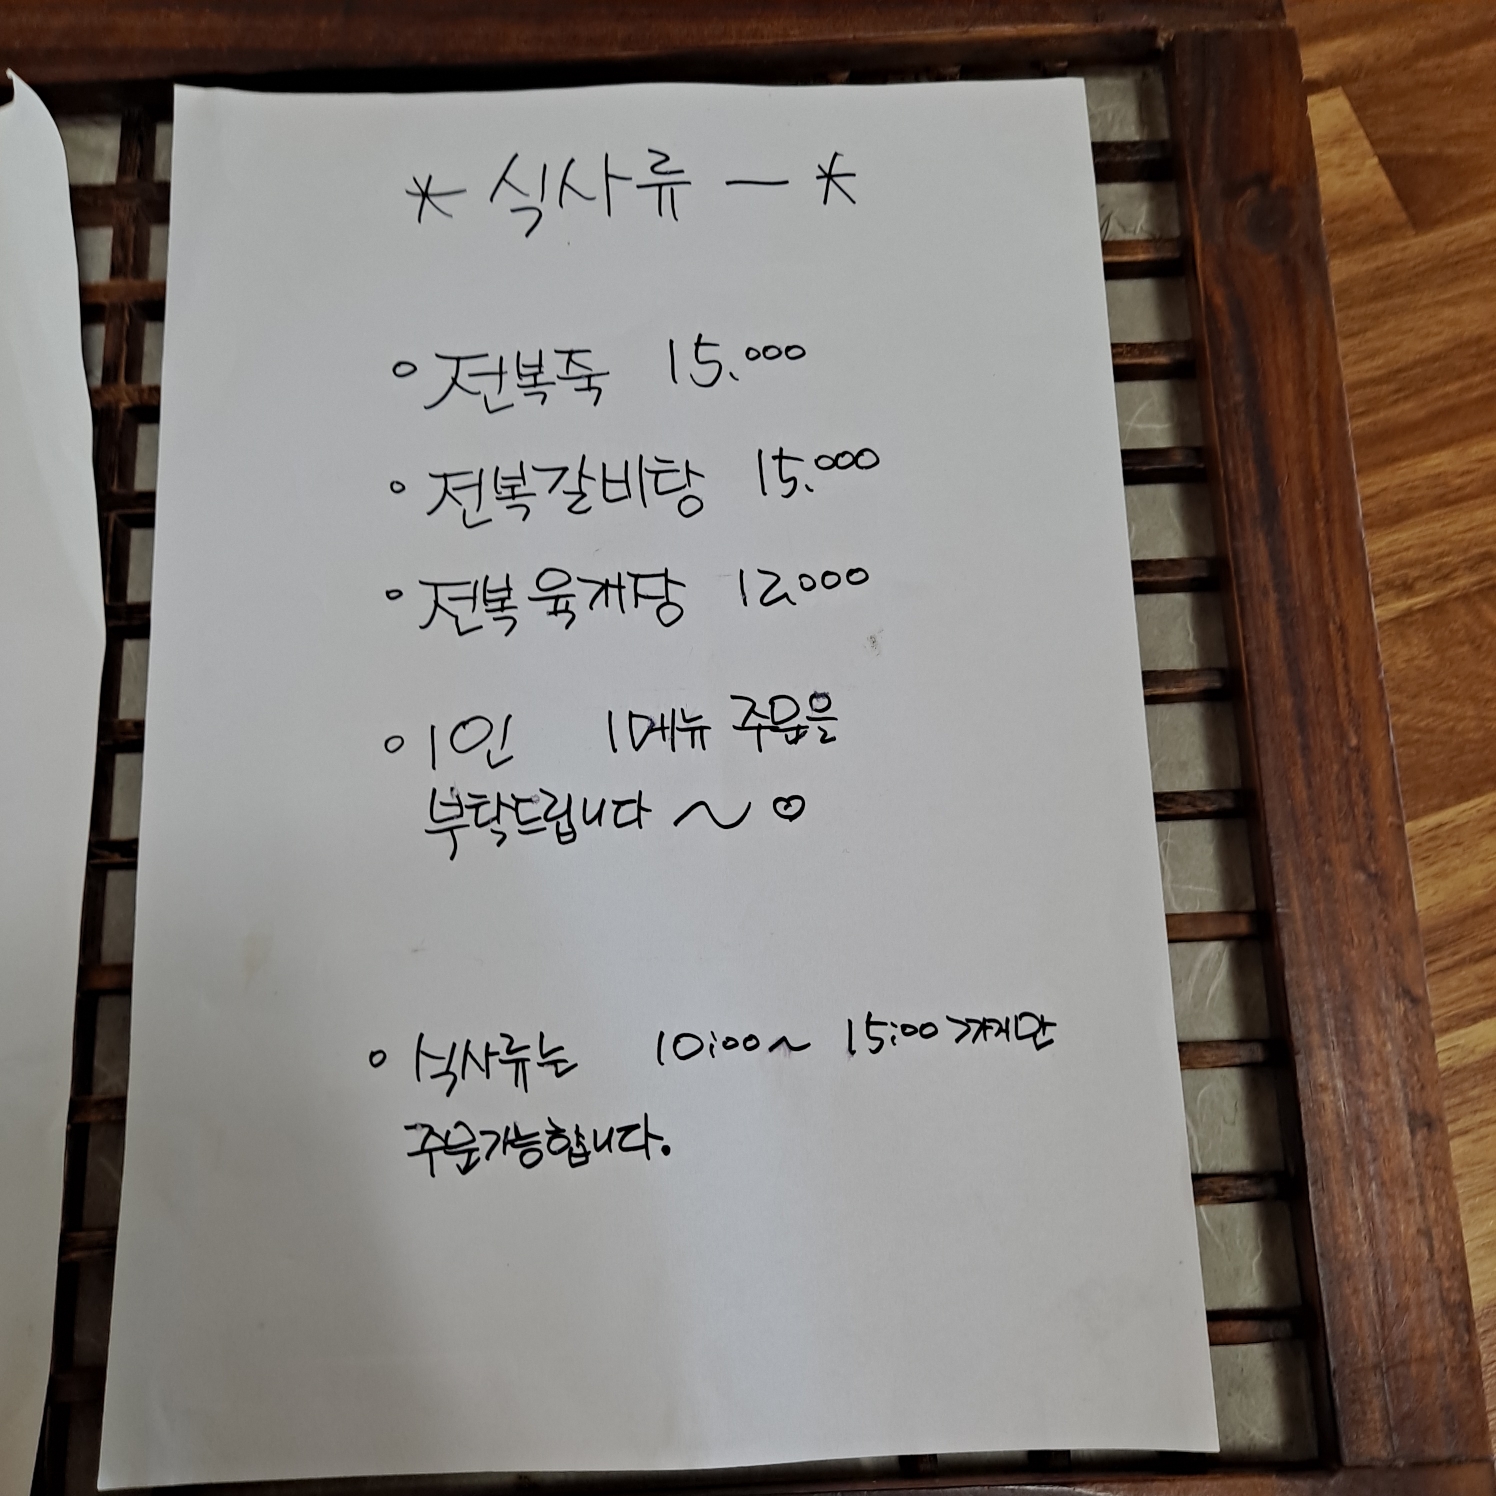 * 식사류 - *
○ 전복죽 15.000
○ 전복갈비탕 15.000
○ 전복육개장 12.000
○ 1인 1메뉴 주문을
부탁드립니다 ~ ♡
○ 식사류는 10:00~ 15:00 까지만
주문가능합니다.